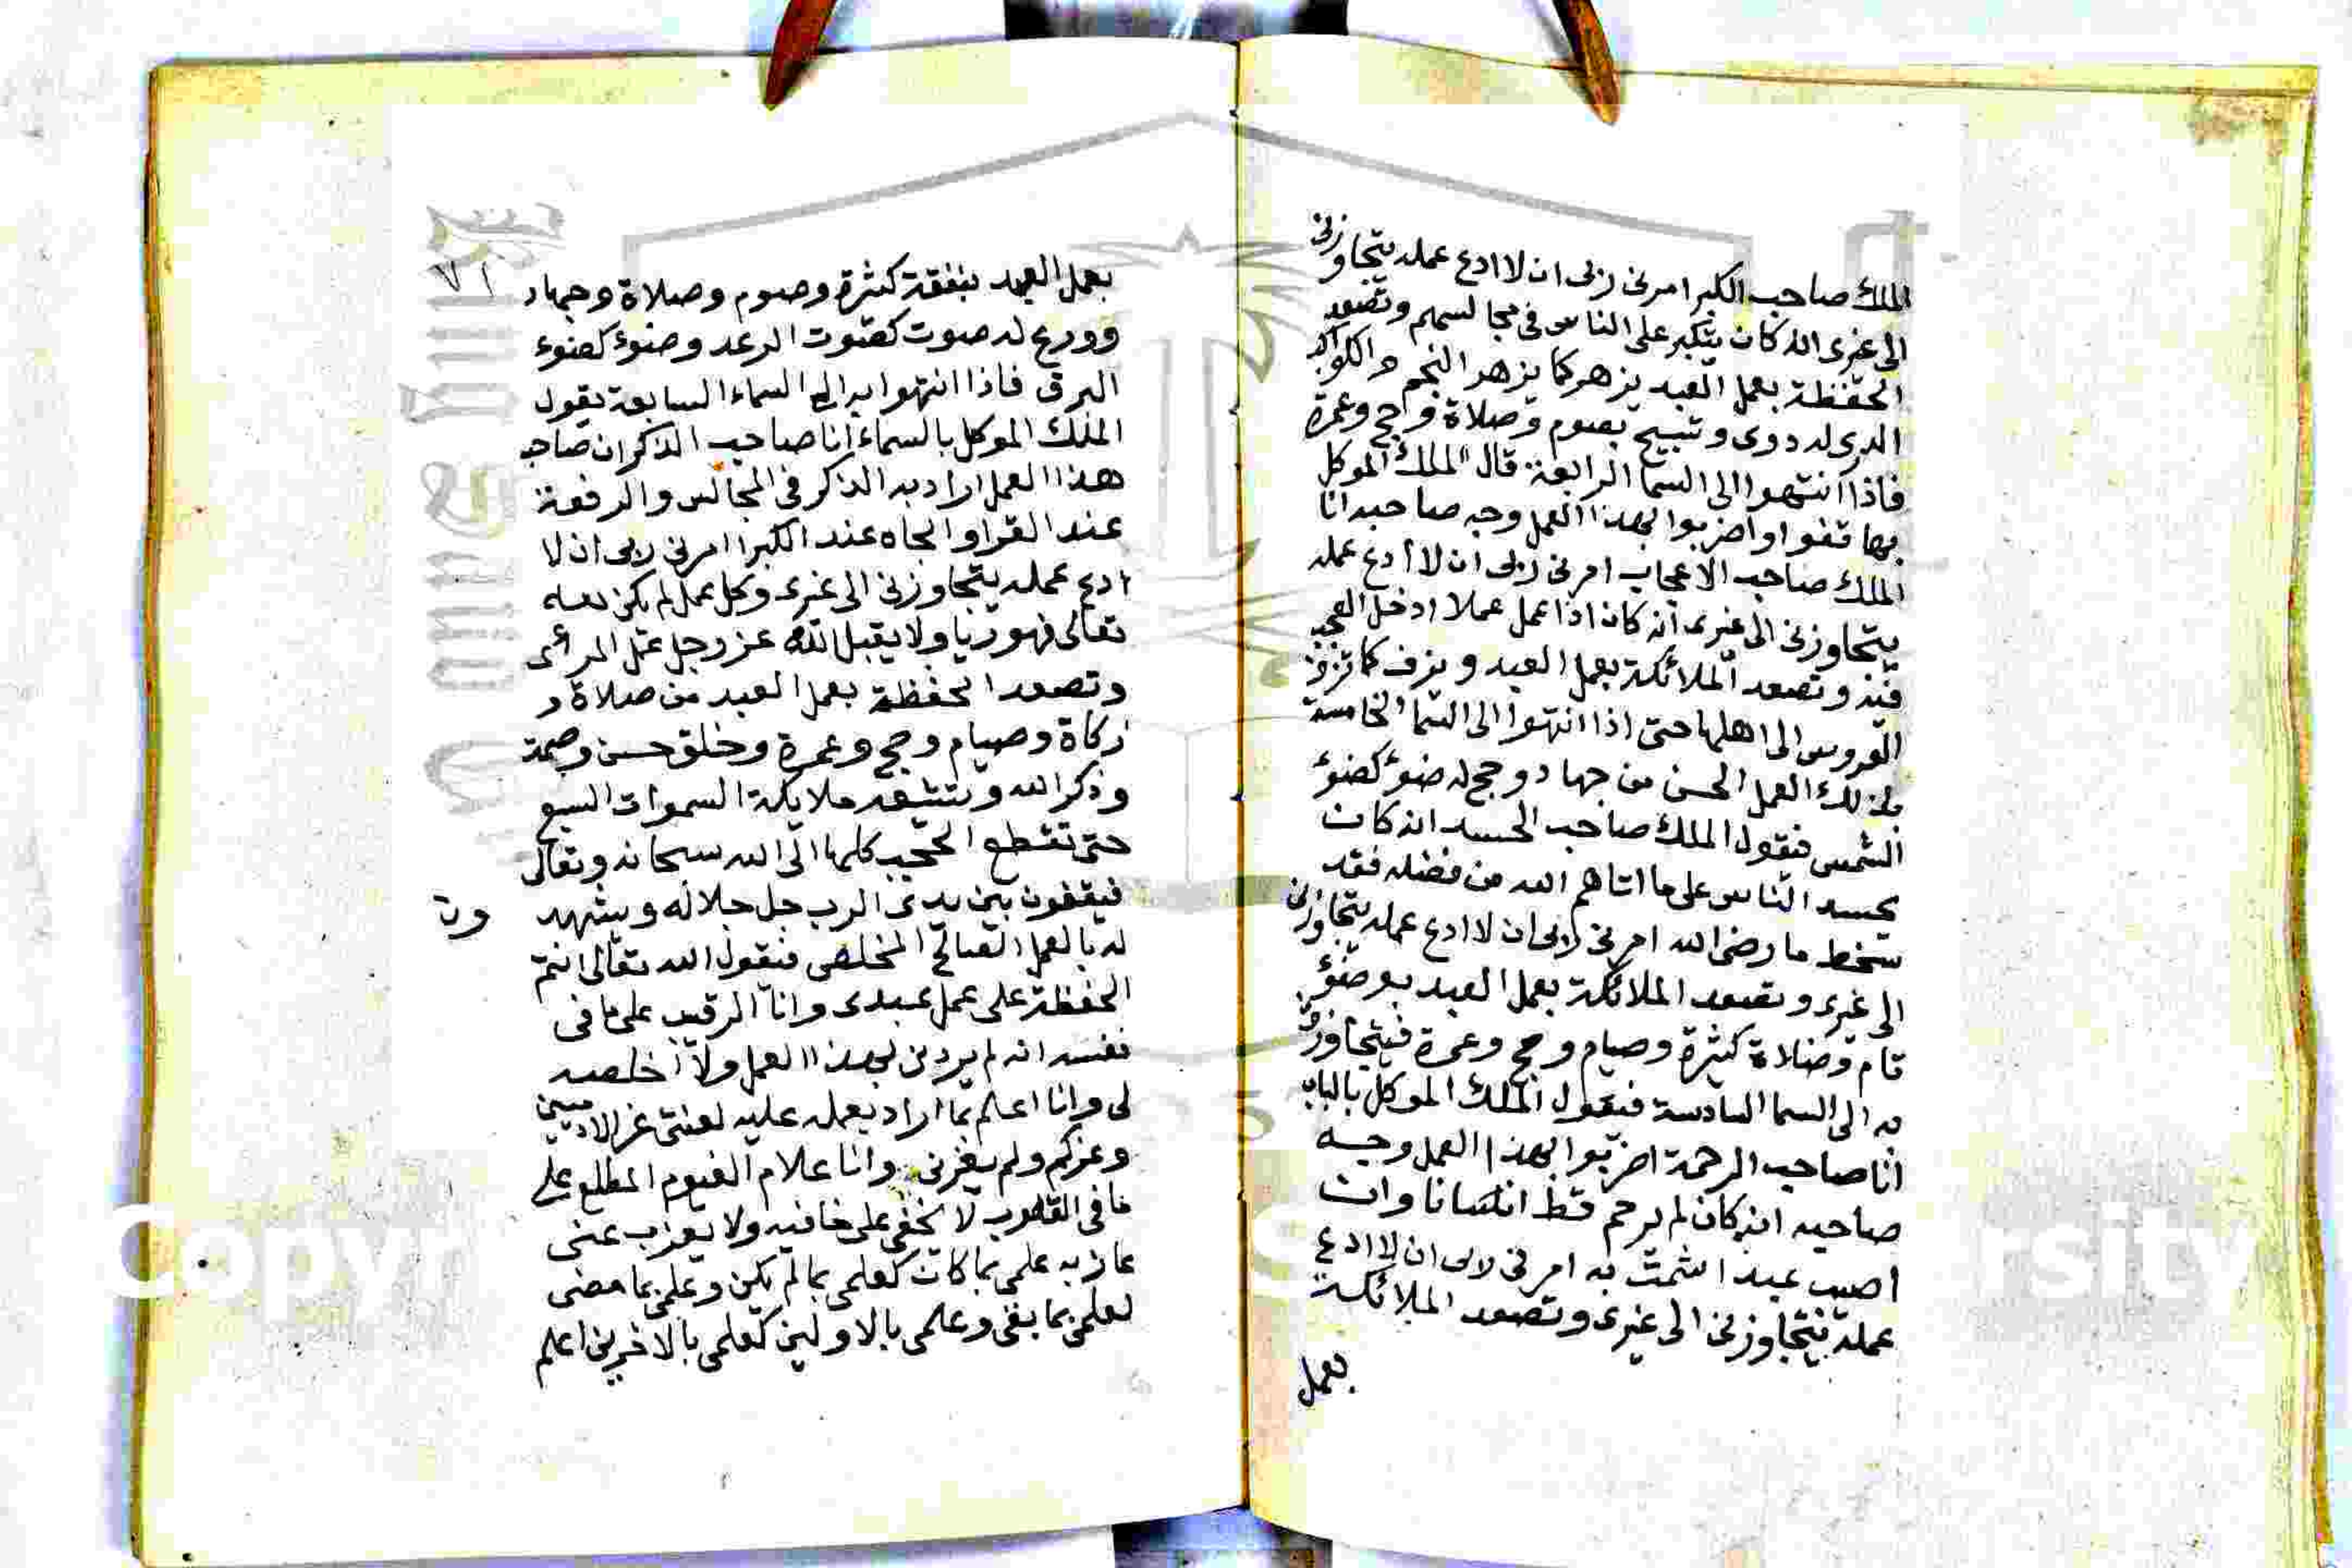 الملك صاحب الكبر امرنى ربى ان لا ادع عمله يتجاوزنى
الى غيرى انه كان يتكبر على الناس فى مجالسهم وتصعد
الحفظة بعمل العبد يزهر كما يزهر النجم والكواكب
الدرى له دوى وتسبيح بصوم وصلاة وحج وعمرة
فاذا انتهوا الى السما الرابعة قال الملك الموكل
بها قفوا واضربوا بهذا العمل وجه صاحبه انا
الملك صاحب الاعجاب امرنى ربى ان لا أدع عمله
يتجاوزنى الى غيرى انه كان اذا عمل عملا ادخل العجب
فيه وتصعد الملائكة بعمل العبد ويزف كما تزف
العروس الى اهلها حتى اذا انتهوا الى السما الخامسة
بذلك العمل الحسن من جهاد وحج له ضوء كضوء
الشمس فيقول الملك صاحب الحسد انه كان
يحسد الناس على ما اتاهم الله من فضله فقد
سخط ما رضى الله امرنى ربى ان لا ادع عمله يتجاوزنى
الى غيرى وتصعد الملائكة بعمل العبد بوضوء
تام وصلاة كثيرة وصيام وحج وعمرة فيتجاوزون
به الى السما السادسة فيقول الملك الموكل بالباب
انا صاحب الرحمة اضربوا بهذا العمل وجه
صاحبه انه كان لم يرحم قط انسانا وان
اصيب عبد اشمت به امرنى ربى ان لا ادع
عمله يتجاوزنى الى غيرى وتصعد الملائكة
بعمل
٧١
بعمل العبد بنفقة كثيرة وصوم وصلاة وجهاد
وورع له صوت كصوت الرعد وضوء كضوء
البرق فاذا انتهوا به الى السماء السابعة يقول
الملك الموكل بالسماء انا صاحب الذكر ان صاحب
هذا العمل اراد به الذكر فى المجالس والرفعة
عند القرا والجاه عند الكبرا امرنى ربى ان لا
ادع عمله يتجاوزنى الى غيرى وكل عمل لم يكن لله
تعالى فهو ريا ولا يقبل الله عز وجل عمل المرائى
وتصعد الحفظة بعمل العبد من صلاة و
زكاة وصيام وحج وعمرة وخلق حسن وصمت
وذكر الله وتشيعه ملايكة السموات السبع
حتى تقطع الحجب كلها الى الله سبحانه وتعالى
فيقفون بين يدى الرب جل جلاله ويشهد ون
له بالعمل الصالح المخلص فيقول الله تعالى انتم
الحفظة على عمل عبدى وانا الرقيب على ما فى
نفسه انه لم يردنى بهذا العمل ولا اخلصه
لى وانا اعلم بما اراد بعمله عليه لعنتى غر الادميين
وغركم ولم يغرنى وانا علام الغيوم المطلع على
ما فى القلوب لا تخفى على خافيه ولا يعزب عنى
عازبه علمى بما كان كعلمى بما لم يكن وعلمى بما مضى
كعلمى بما بقى وعلمى بالاولين كعلمى بالاخرين اعلم